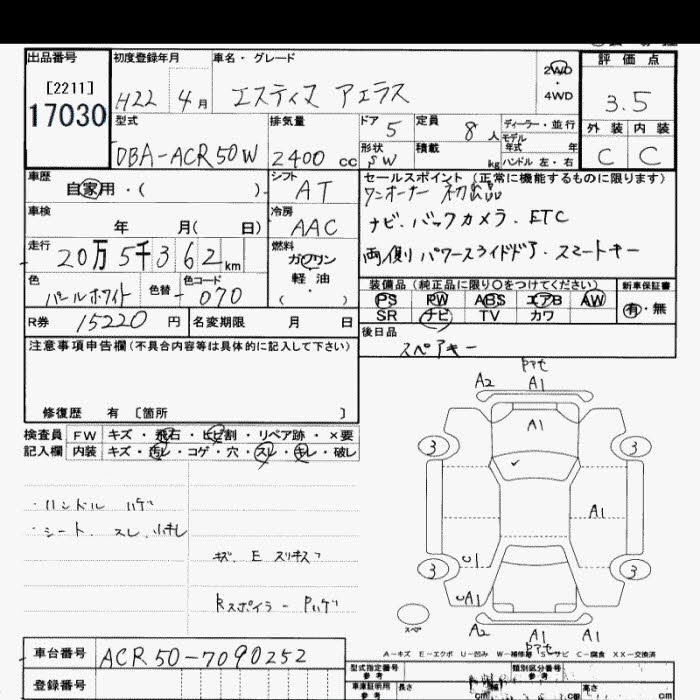 出品番号 初度登録年月 車名・グレード 2WD ・ 4WD 評価点
[2211]
17030
H22 4月 エスティマ アエラス 3.5
型式 排気量 ドア 5 定員 8人 ディーラー・並行 外装 内装
モデル年式 年
DBA-ACR50W 2400cc 形状 SW 積載 kg ハンドル 左・右 C C
車歴 自家用・( ) シフト AT セールスポイント(正常に機能するものに限ります)
ワンオーナー
車検 年 月( 日) 冷房 AAC ナビ. バックカメラ. ETC
走行 20万5千362km 燃料 ガソリン 軽油 ( ) 両側パワースライドドア. スマートキー
色 パールホワイト 色替 - 色コード 070 装備品(純正品に限り○をつけてください) 新車保証書
PS PW ABS エアB AW 有・無
SR ナビ TV カワ
R券 15220円 名変期限 月 日 後日品
スペアキー
注意事項申告欄(不具合内容等は具体的に記入して下さい)
修復歴 有 〔箇所 〕
検査員 FW キズ・飛石・ヒビ割・リペア跡・×要
記入欄 内装 キズ・汚レ・コゲ・穴・スレ・キレ・破レ
・ハンドル ハゲ
・シート. スレ. 小キレ
キズ. E スリキズ
Rスポイラー Pハゲ
A2 A1
A1
3 3
A1
U1
3 3
UA1
スペア
A2 A1 A1
A-キズ E-エクボ U-凹み W-補修跡 S-サビ C-腐食 XX-交換済
車台番号 ACR50-7090252
登録番号
型式指定番号 類別区分番号
車庫証明用参考 長さ cm 高さ cm